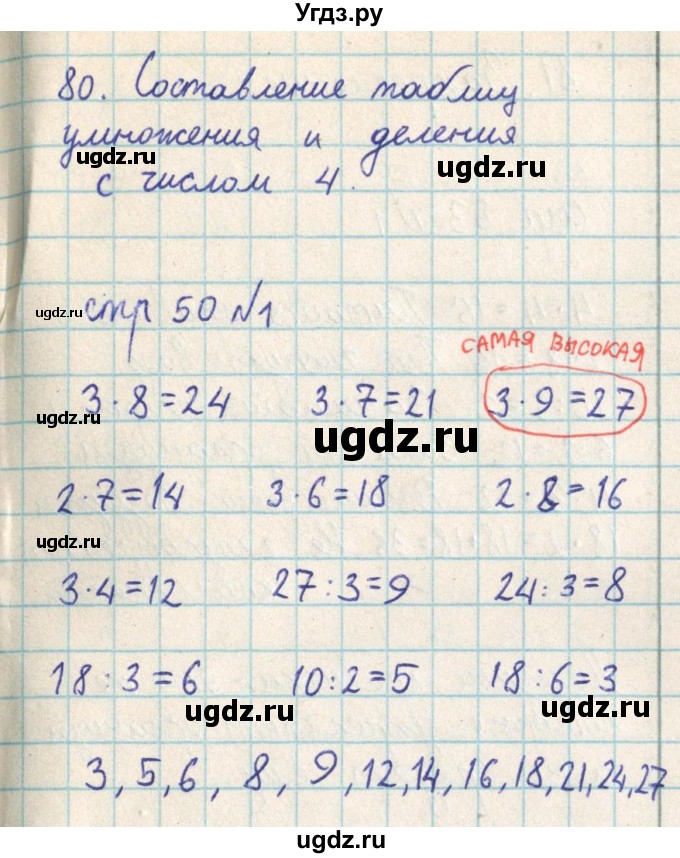 Угдз.ру
80. Составление таблиц
умножения и деления
ugdz.ru ugdz.ru
с числом 4.
ugdz.ru
стр 50 №1
САМАЯ ВЫСОКАЯ
3·8=24 3·7=21 3·9=27
ugdz.ru ugdz.ru
2·7=14 3·6=18 2·8=16
ugdz.ru ugdz.ru
3·4=12 27:3=9 24:3=8
18:3=6 10:2=5 18:6=3
ugdz.ru ugdz.ru
3, 5, 6, 8, 9, 12, 14, 16, 18, 21, 24, 27
ugdz.ru